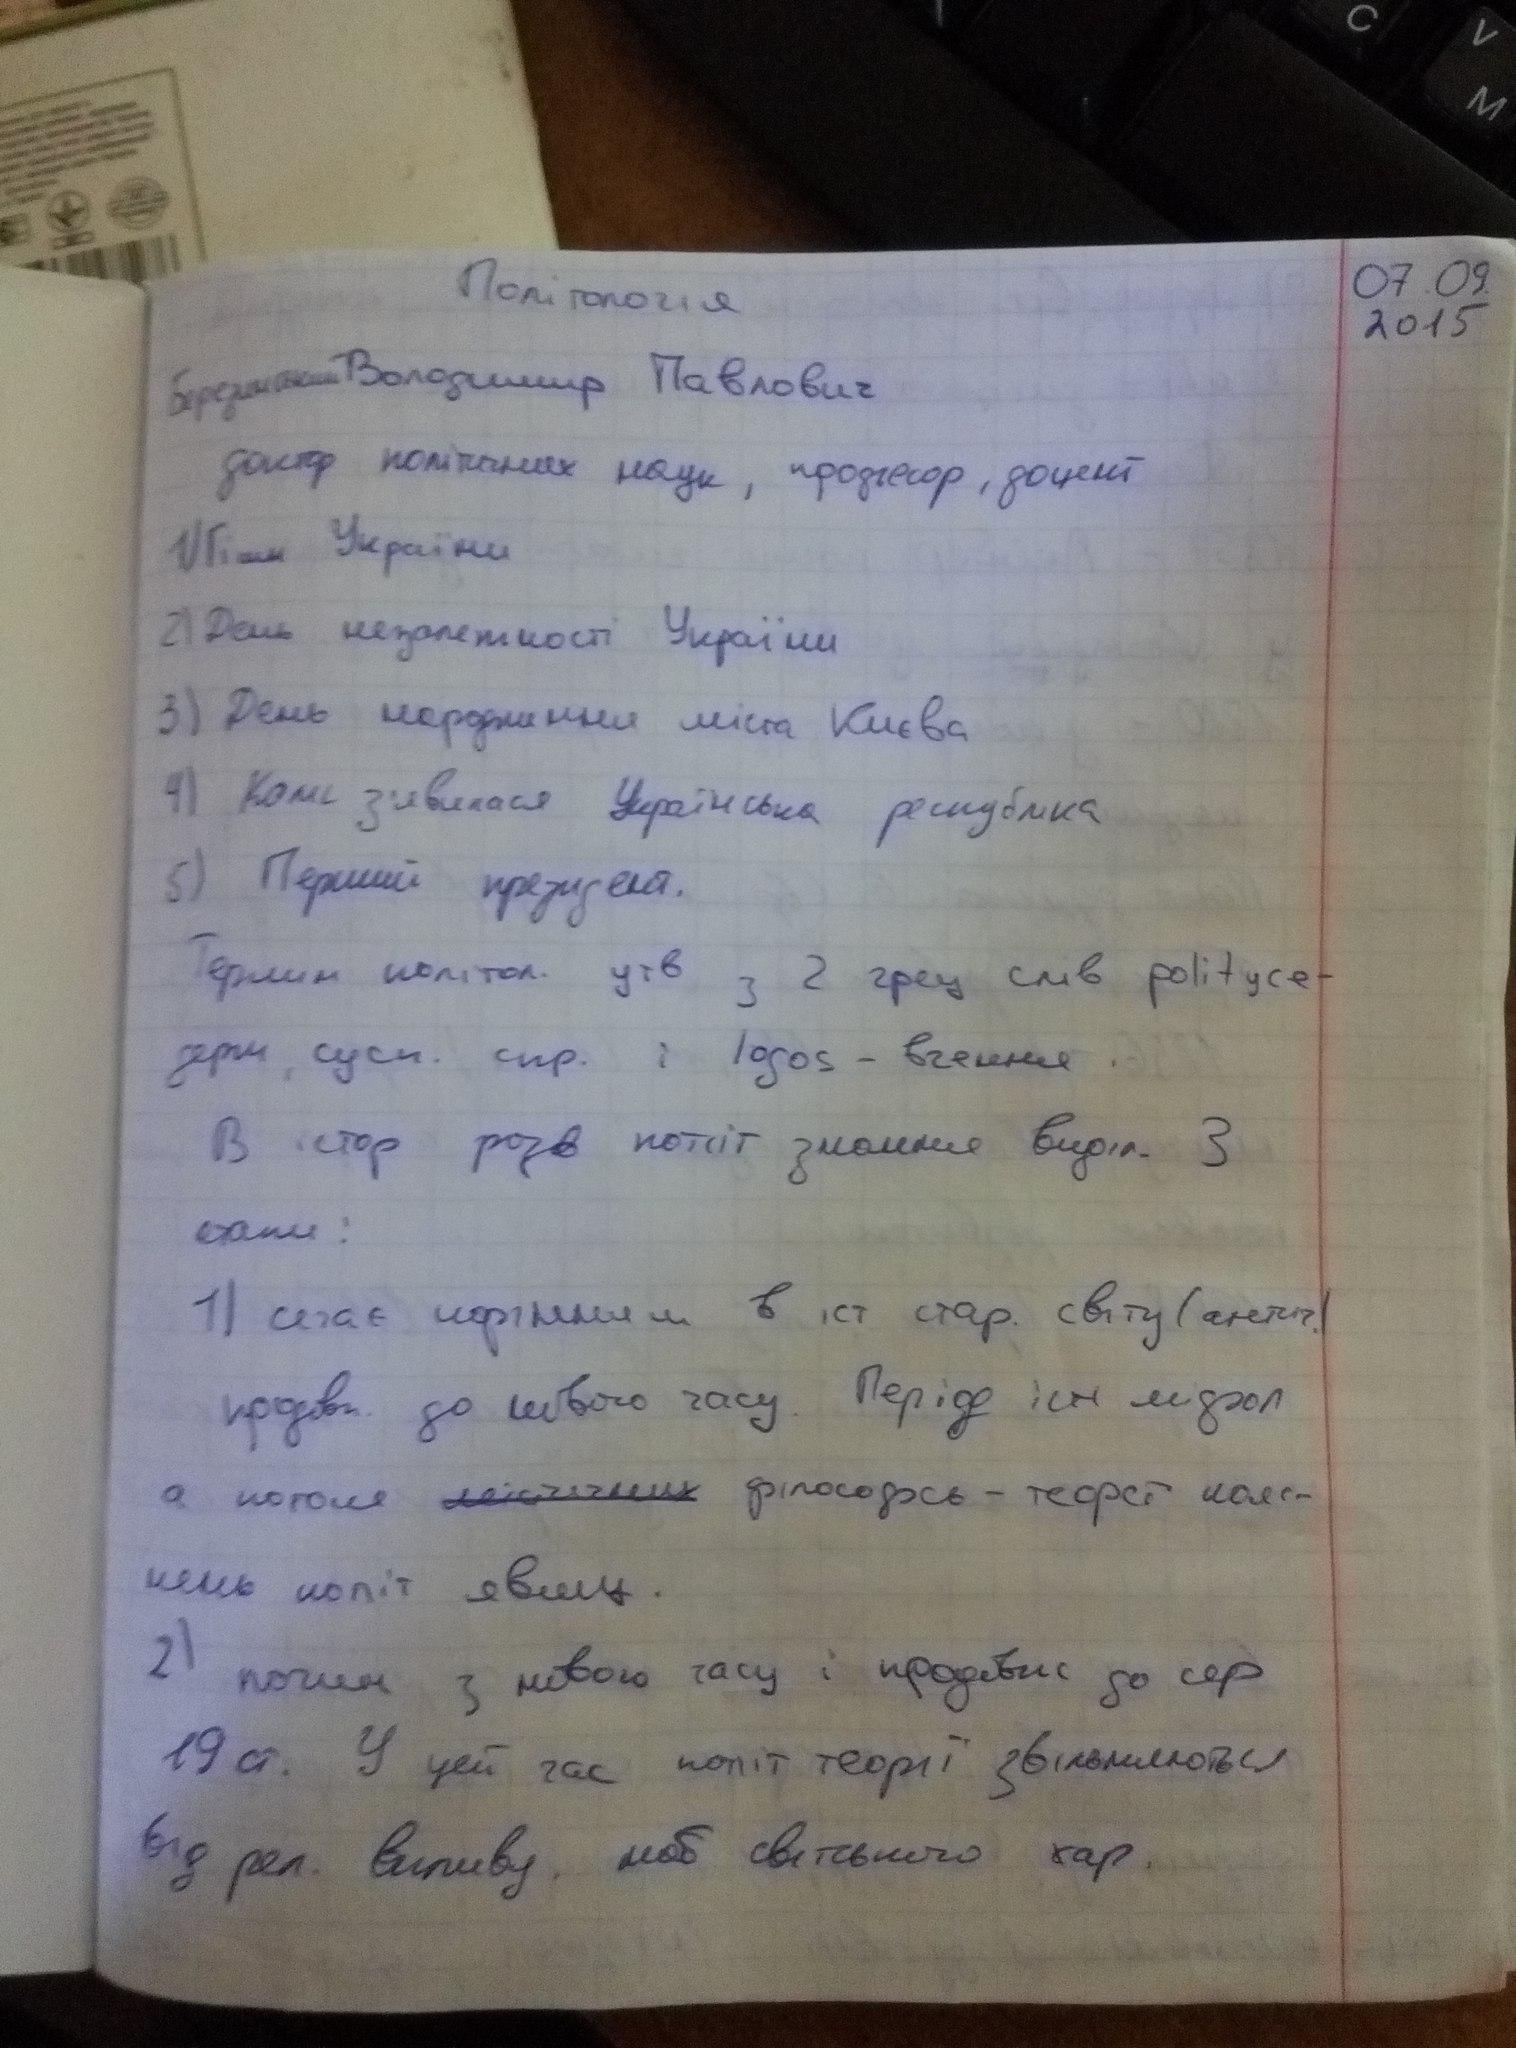 Політологія
07.09.
2015
Володимир Павлович
доктор політичних наук, професор, доцент
1) Гімн України
2) День незалежності України
3) День народження міста Києва
4) Коли з'явилася Українська республіка
5) Перший президент.
Термін політол. утв з 2 грец слів polityce-
держ, сусп. спр. і logos - вчення.
В істор розв політ знання виділ. 3
етапи:
1) сягає корінням в іст стар. світу (антич.)
продовж. до нового часу. Період існ міфол
а потом філософсь - теорет пояс-
нень політ явищ.
2) почин з нового часу і продовжс до сер
19 ст. У цей час політ теорії звільняються
від рел. впливу. наб світського хар.
C
V
M